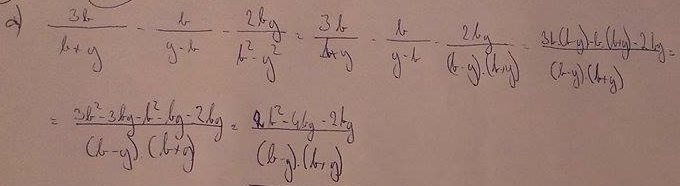 a) 3b/(b+y) - b/(y-b) - 2by/(b²-y²) = 3b/(b+y) - b/(y-b) - 2by/((b-y).(b+y)) = (3b(b-y)-b.(b+y)-2by)/((b-y).(b+y)) =
= (3b²-3by-b²-by-2by)/((b-y).(b+y)) = (2b²-4by-2by)/((b-y).(b+y))